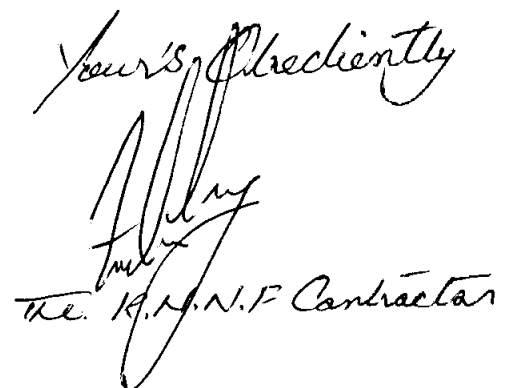 Your's Obediently
The. K.M.N.F Contractor